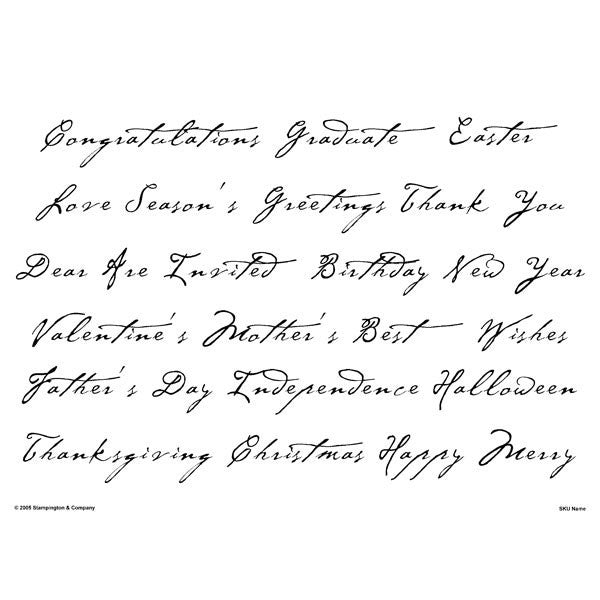 Congratulations Graduate Easter
Love Season's Greetings Thank You
Dear Are Invited Birthday New Year
Valentine's Mother's Best Wishes
Father's Day Independence Halloween
Thanksgiving Christmas Happy Merry
© 2005 Stampington & Company SKU Name